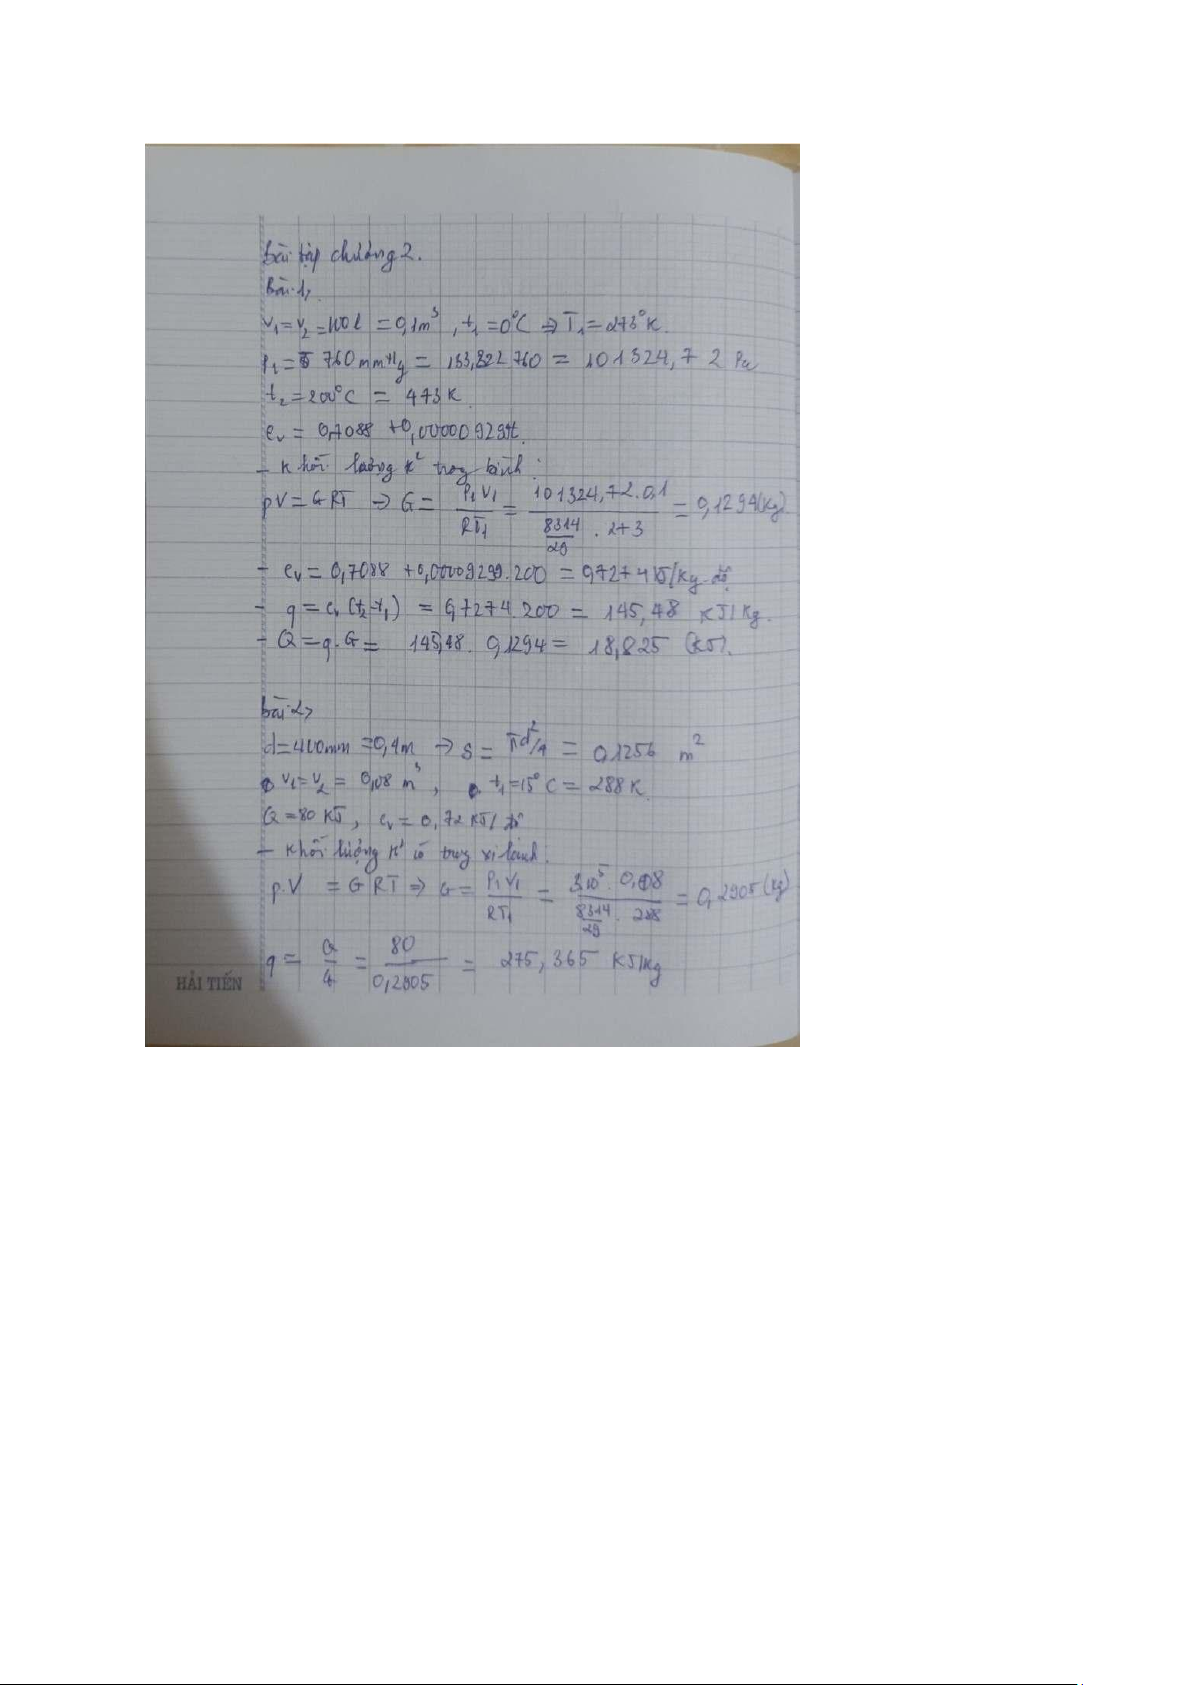 Bài tập chương 2.
Bài 1,
V₁=V₂=100l =0,1m³, t₁=0°C ⇒ T₁=273°K.
P₁= 760mmHg = 133,322.760 = 101324,72 Pa
t₂=200°C = 473K.
Cv = 0,7088 +0,00009299t.
- Khối lượng k² trong bình:
pV=GRT ⇒ G= P₁V₁/RT₁ = 101324,72.0,1/(8314/29 . 273) = 0,1294(kg).
- Cv = 0,7088 +0,00009299.200 = 0,7274 KJ/kg.độ
- q=Cv(t₂-t₁) = 0,7274.200 = 145,48 KJ/kg.
- Q=q.G= 145,48. 0,1294= 18,825 (KJ).
Bài 2,
d=400mm =0,4m → S= πd²/4 = 0,1256 m²
V₁=V₂= 0,08m³, t₁=15°C = 288K.
Q=80KJ, Cv=0,72KJ/độ
- Khối lượng k² có trong xi lanh:
p.V = GRT ⇒ G= P₁V₁/RT₁ = 3.10⁵.0,08/(8314/29 . 288) = 0,2905(kg)
q= Q/G = 80/0,2905 = 275,365 KJ/kg
HẢI TIẾN